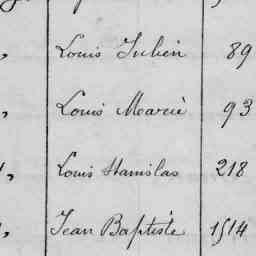 Louis Julien 89
Louis Marie 93
Louis Stanislas 218
Jean Baptiste 1514